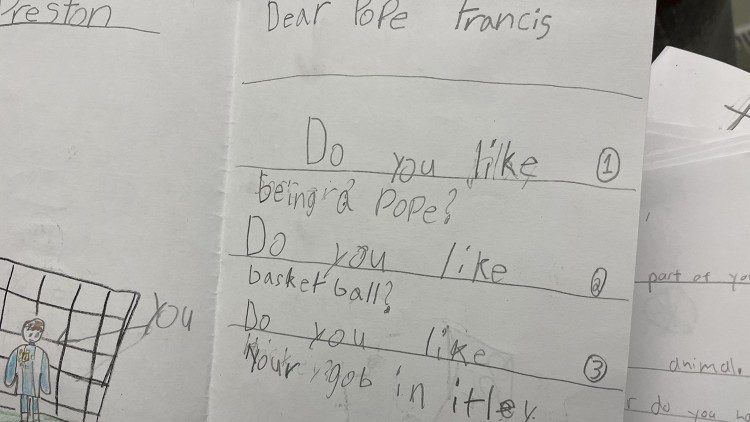 Preston
Dear Pope Francis
Do you like ①
being a Pope?
Do you like ②
basketball?
Do you like ③
Your gob in itley.
You
part of yo
animal.
r do you ha